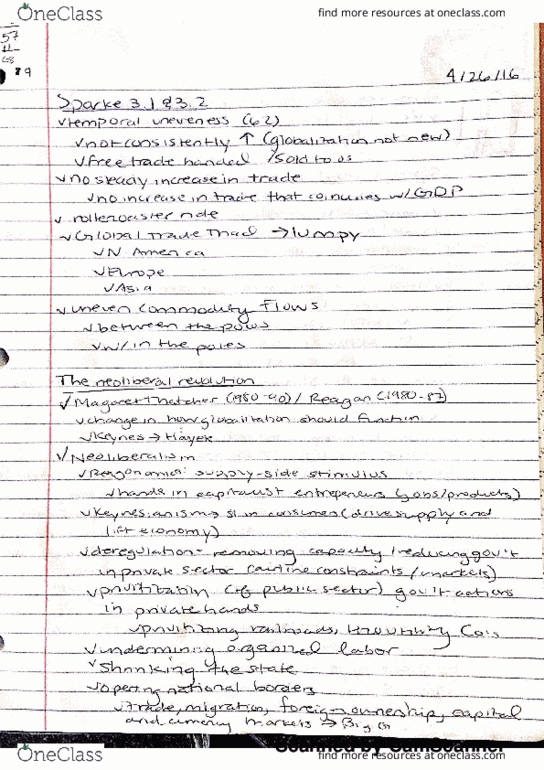 OneClass
find more resources at oneclass.com
57
4/26/16
Sparke 3.1 & 3.2
temporal uneveness (62)
not consistently ↑ (globalization not new)
free trade handed / sold to us
no steady increase in trade
no increase in trade that coincides w/ GDP
rollercoaster ride
Global Trade Triad → lumpy
N America
Europe
Asia
uneven commodity flows
between the poles
w/in the poles
The neoliberal revolution
Margaret Thatcher (1980-90) / Reagan (1980-87)
change in how globalization should function
Keynes → Hayek
Neoliberalism
Reagonomics: supply-side stimulus
hands in capitalist entrepeneurs (jobs/products)
Keynesianism → $ in consumers (drive supply and
lift economy)
deregulation - removing capacity / reducing gov't
in private sector constraints / markets)
privitization (of public sector) gov't actions
in private hands
privitizing railroads, Co.'s
undermining organized labor
shrinking the state
opening national borders
trade, migration, foreign ownership, capital
and currency markets →
Scanned by CamScanner
OneClass
find more resources at oneclass.com